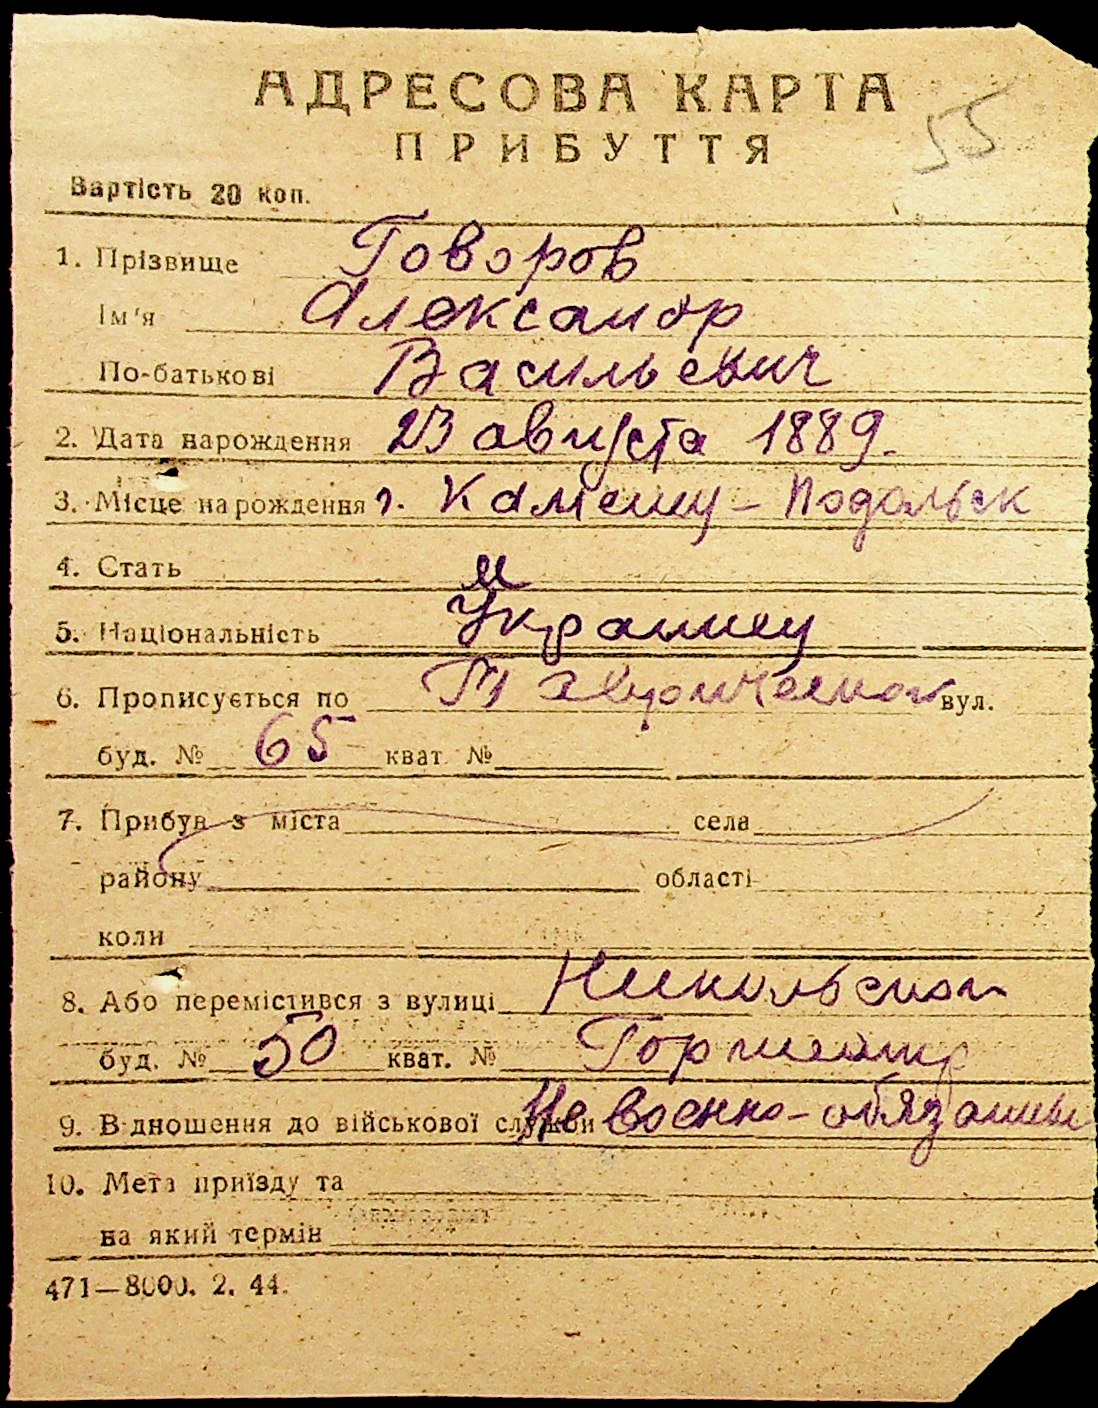 АДРЕСОВА КАРТА
ПРИБУТТЯ
55
Вартість 20 коп.
1. Прізвище Говоров
Ім'я Александр
По-батькові Васильевич
2. Дата народження 23 августа 1889.
3. Місце народження г. Каменец-Подольск
4. Стать м
5. Національність Украинец
6. Прописується по вул.
буд. № 65 кват. №
7. Прибув з міста села
району області
коли
8. Або перемістився з вулиці Никольской
буд. № 50 кват. №
9. Відношення до військової служби Не военно-обязанный
10. Мета приїзду та
на який термін
471—8000. 2. 44.